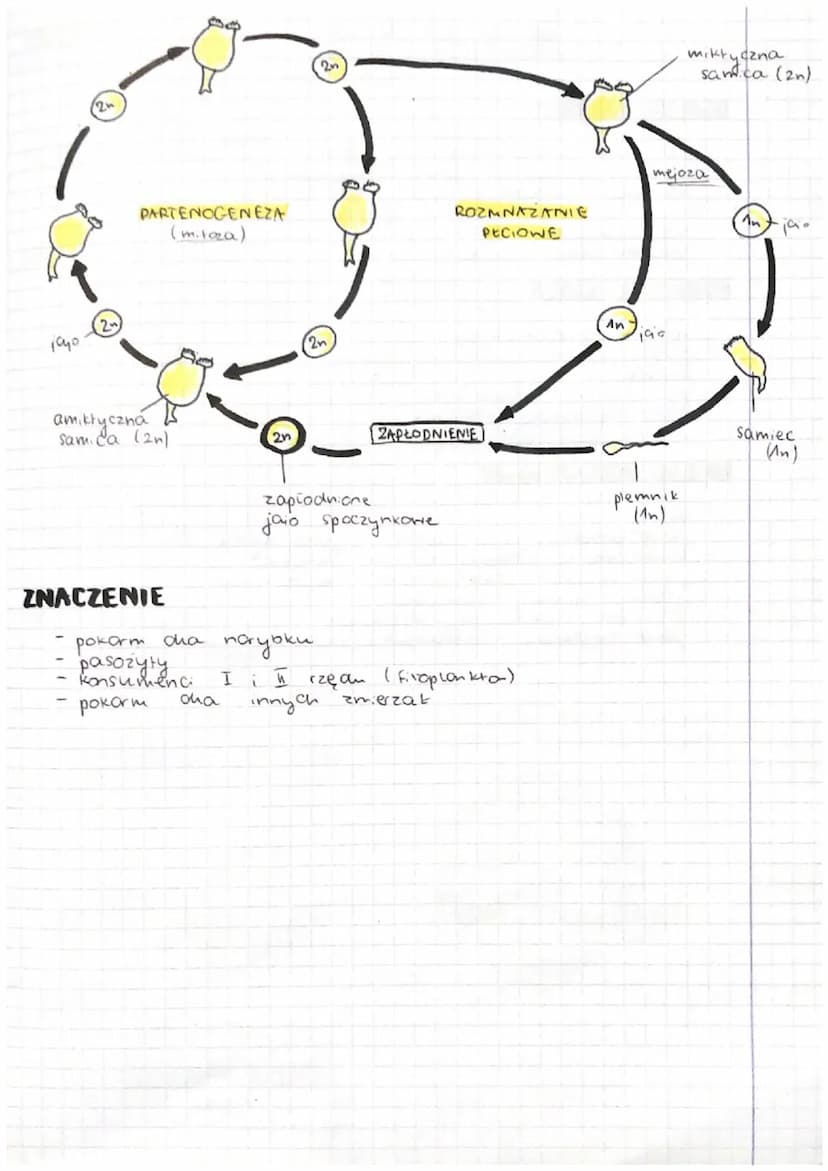 2n
2n
miktyczna
samica (2n)
mejoza
PARTENOGENEZA
(mitoza)
ROZMNAŻANIE
PŁCIOWE
1n jajo
2n
jajo
2n
1n jajo
amiktyczna
samica (2n)
2n
ZAPŁODNIENIE
samiec
(1n)
zapłodnione
jajo spoczynkowe
plemnik
(1n)
ZNACZENIE
- pokarm dla narybku
- pasożyty
- konsumenci I i II rzędu (fitoplankton)
- pokarm dla innych zwierząt